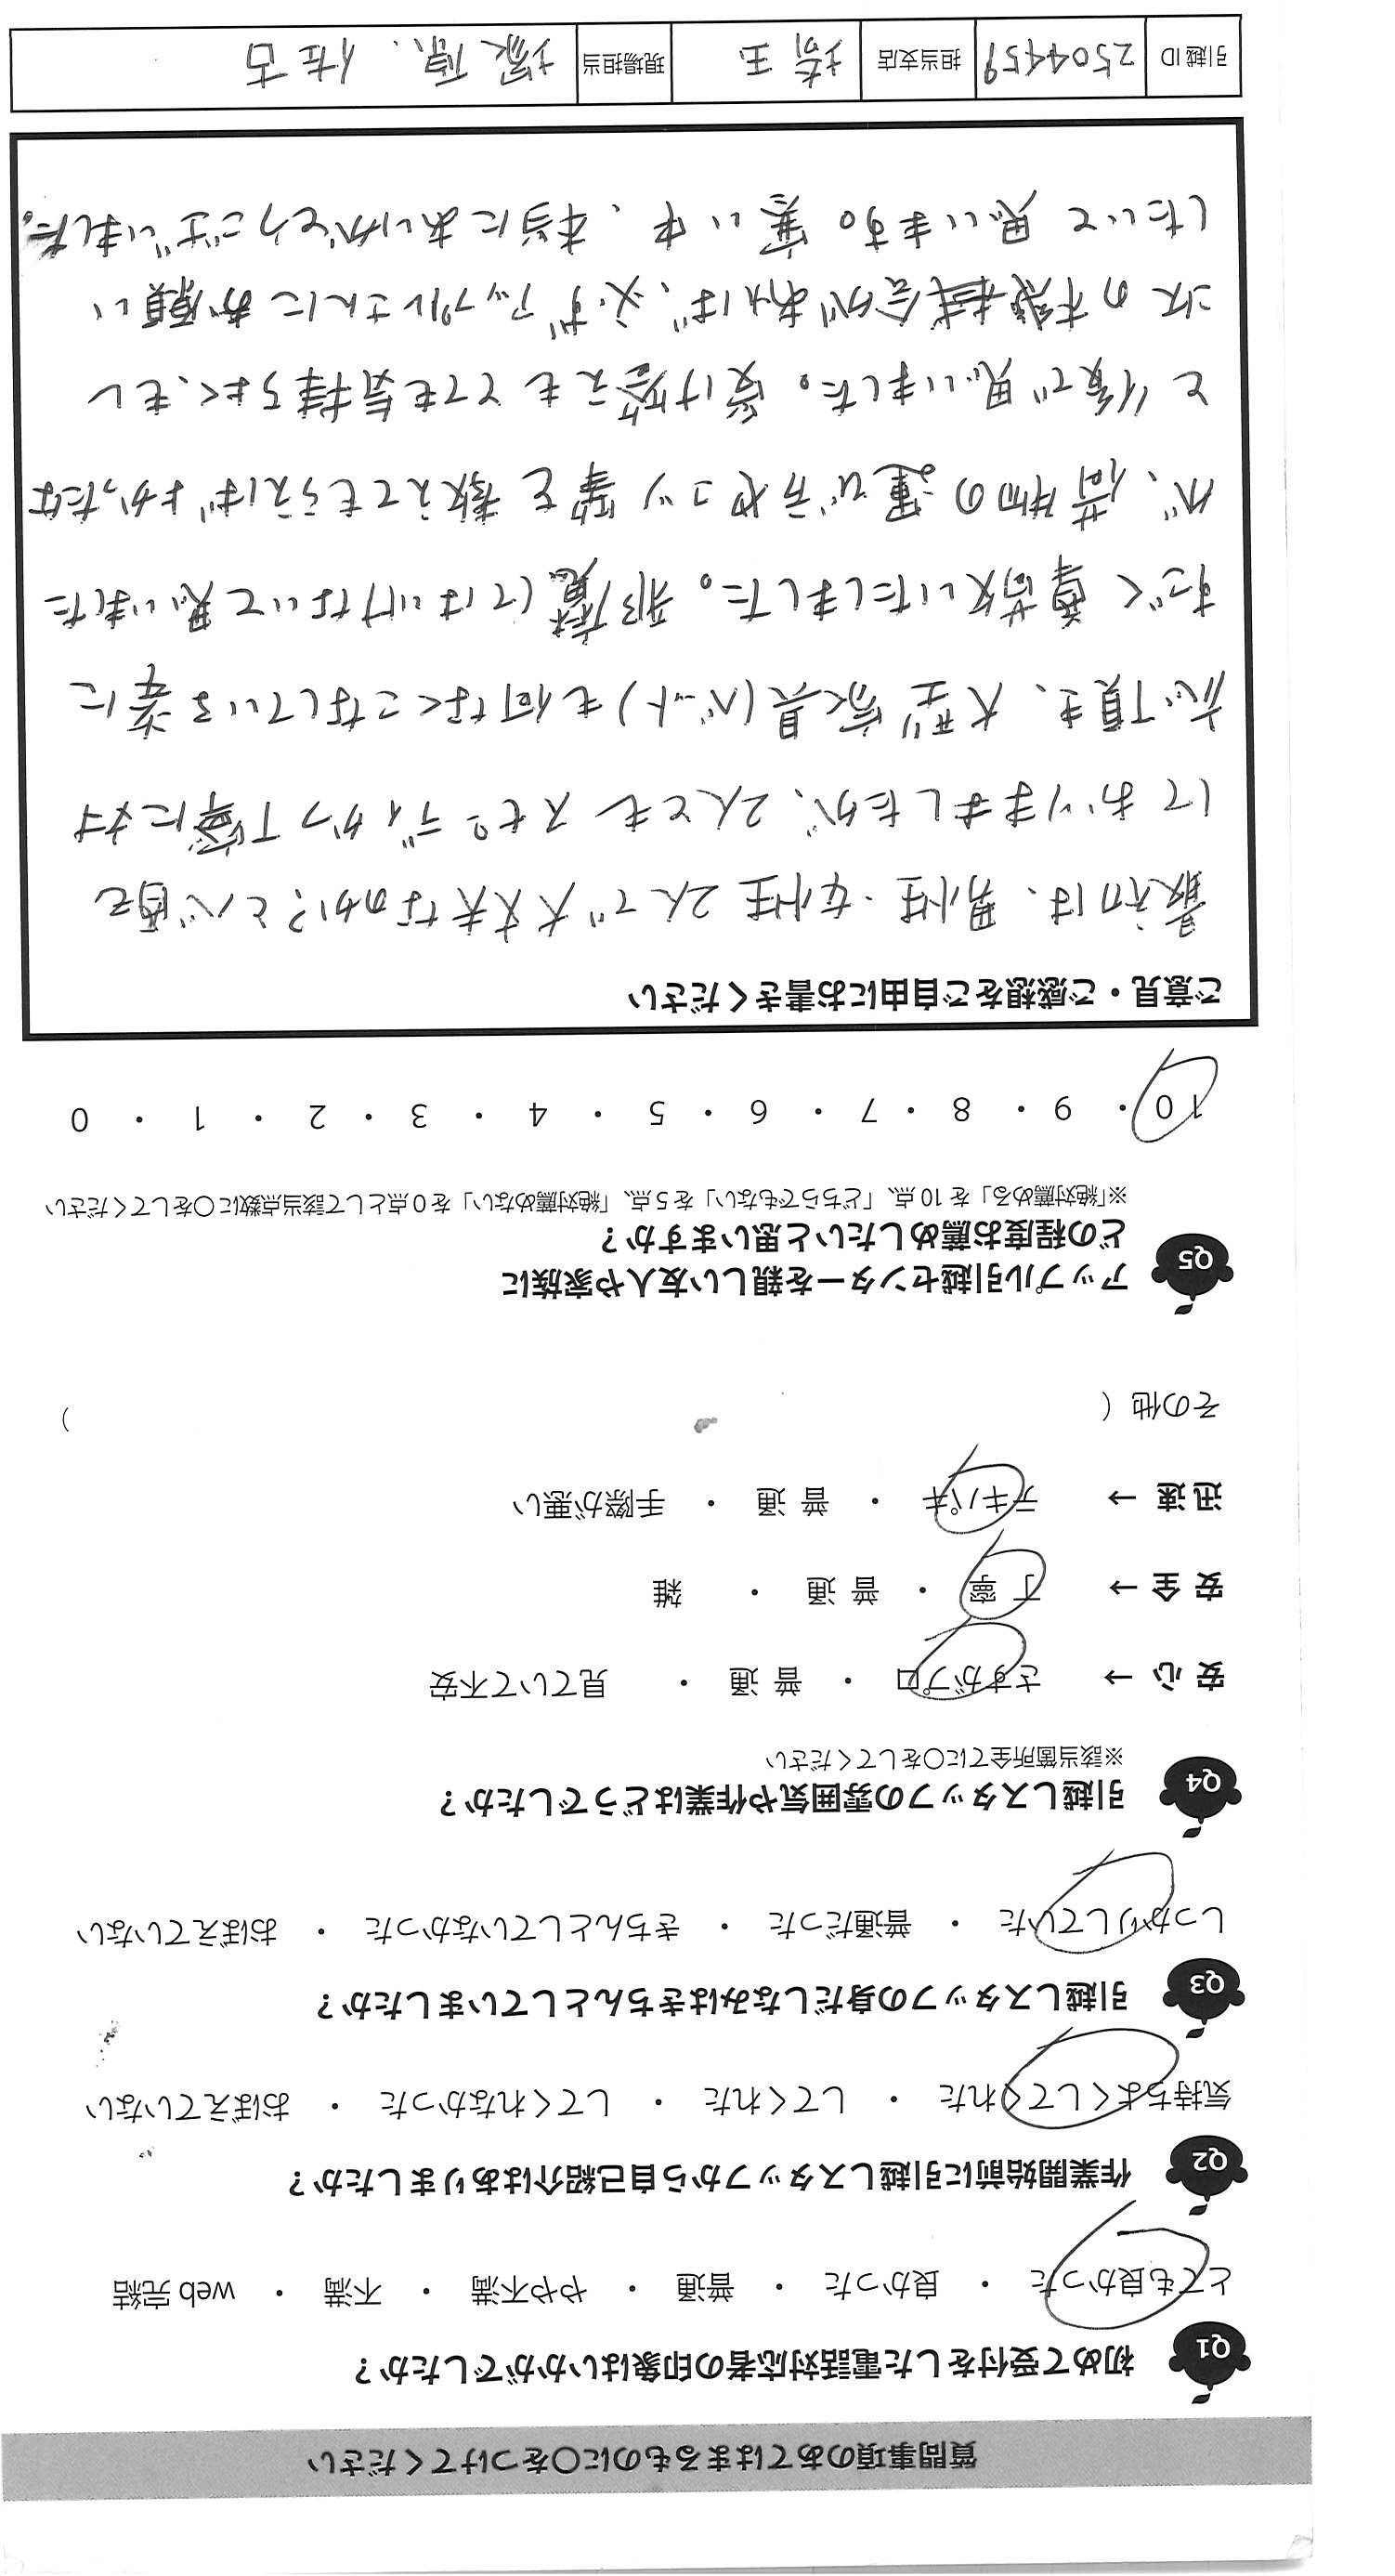 質問事項のあてはまるものに〇をつけてください
Q1 初めて受付をした電話対応者の印象はいかがでしたか？
とても良かった ・ 良かった ・ 普通 ・ やや不満 ・ 不満 ・ web 完結
Q2 作業開始前に引越しスタッフから自己紹介はありましたか？
気持ちよくしてくれた ・ してくれた ・ してくれなかった ・ おぼえていない
Q3 引越しスタッフの身だしなみはきちんとしていましたか？
しっかりしていた ・ 普通だった ・ きちんとしていなかった ・ おぼえていない
Q4 引越しスタッフの雰囲気や作業はどうでしたか？
※該当箇所全てに〇をしてください
安心 → さすがプロ ・ 普通 ・ 見ていて不安
安全 → 丁寧 ・ 普通 ・ 雑
迅速 → テキパキ ・ 普通 ・ 手際が悪い
その他 ( )
Q5 アップル引越センターを親しい友人や家族に
どの程度お薦めしたいと思いますか？
※「絶対薦める」を 10 点、「どちらでもない」を 5 点、「絶対薦めない」を 0 点として該当点数に〇をしてください
10 ・ 9 ・ 8 ・ 7 ・ 6 ・ 5 ・ 4 ・ 3 ・ 2 ・ 1 ・ 0
ご意見・ご感想をご自由にお書きください
最初は、男性・女性 2人で大丈夫なのか?と心配を
しておりましたが、2人とも スピーディかつ丁寧に対
応頂き、大型家具(ベット)も何なくこなしている姿に
すごく尊敬いたしました。邪魔してはいけないと思いました
が、荷物の運び方やコツ等を教えてもらえばよかったな
と後で思いました。受け答えもとても気持ちよく、もし
次の機会があれば、必ずアップルさんにお願い
したいと思います。寒い中、本当にありがとうございました。
引越 ID 2504459 担当支店 埼玉 現場担当 塚原、佐古